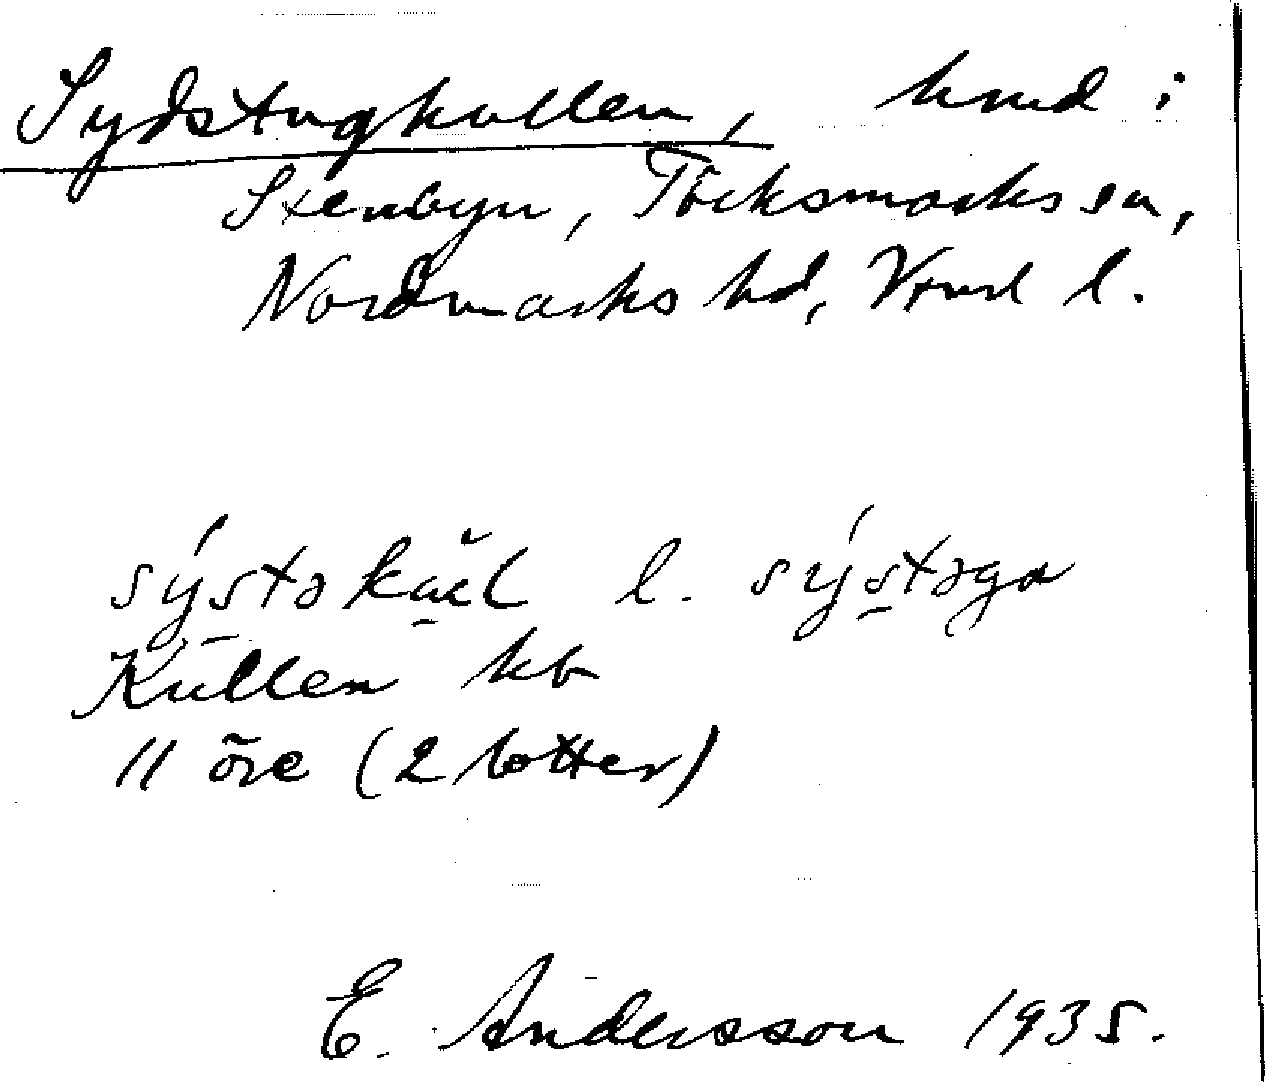 Sydstugkullen, hmd i
Stenbyn, Töcksmarks sn,
Nordmarks hd, Vrml l.
sýstəkäil l. sýstəga
Kullen kb
11 öre (2 lotter)
E. Andersson 1935.